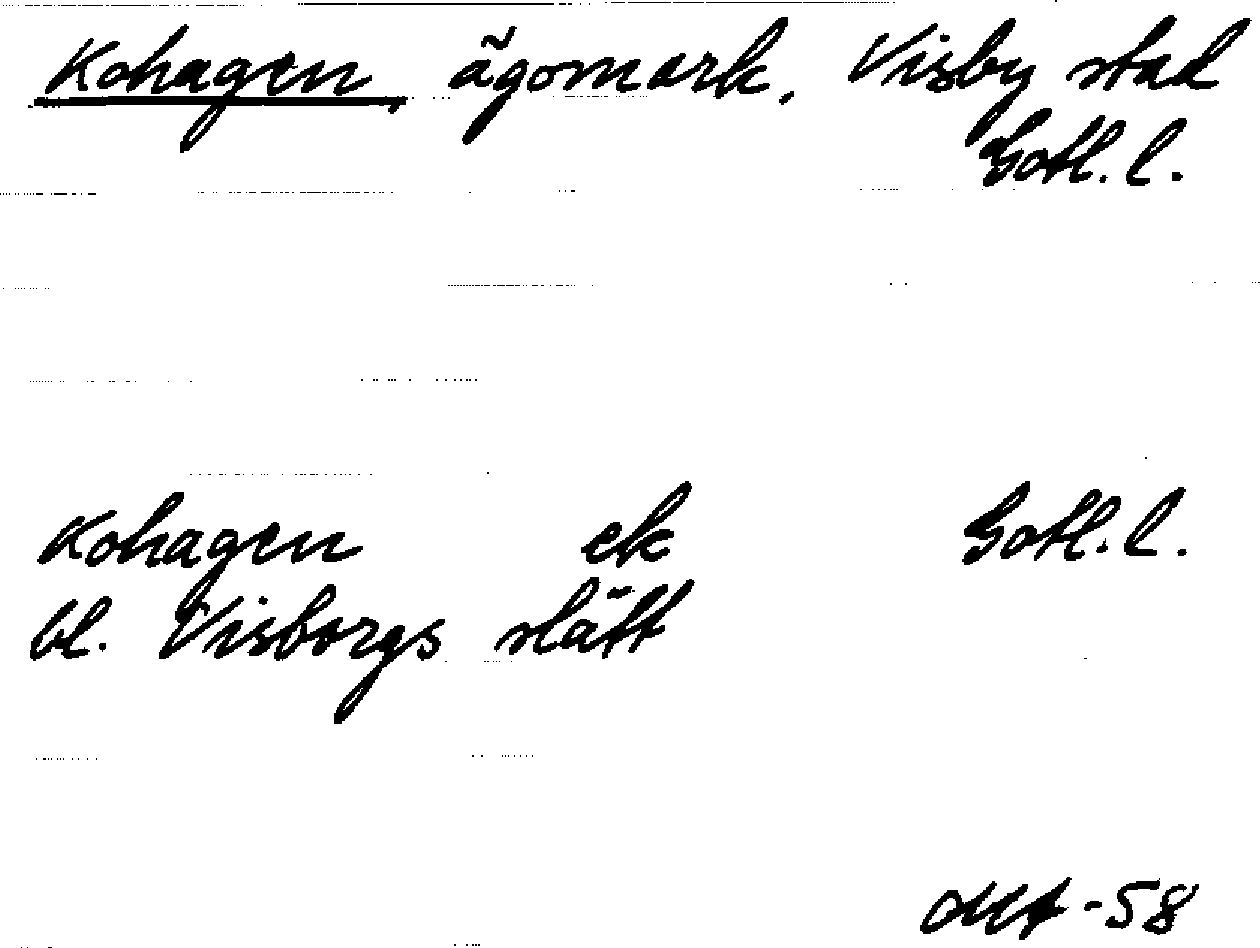 Kohagen, ägomark, Visby stad
Gotl. l.
Kohagen ek Gotl. l.
bl. Visborgs slätt
-58